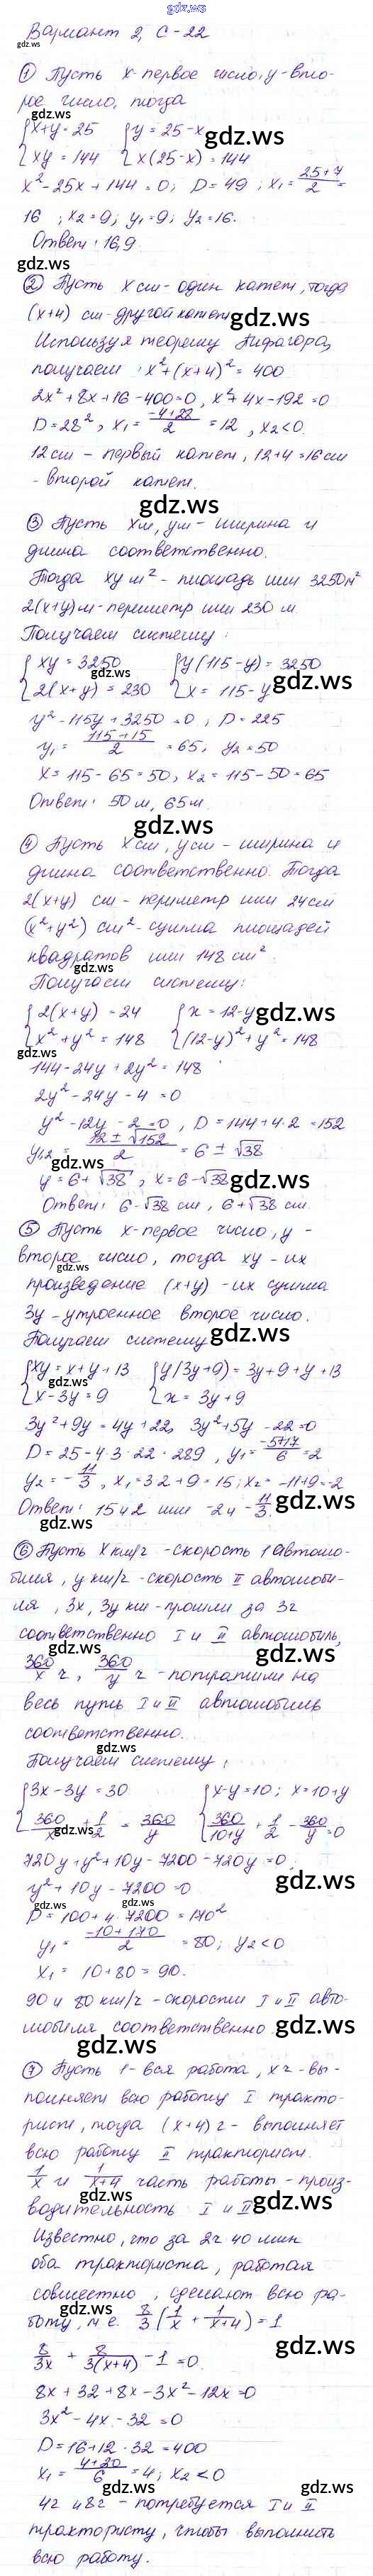 gdz.ws
Вариант 2, С-22
gdz.ws
① Пусть x-первое число, y-вто-
рое число, тогда
gdz.ws
{x+y=25 {y=25-x gdz.ws
{xy=144 {x(25-x)=144
x²-25x+144=0; D=49; x₁=(25+7)/2=
16; x₂=9; y₁=9; y₂=16.
Ответ: 16,9
gdz.ws
② Пусть x см-один катет, тогда
(x+4) см-другой катет gdz.ws
Используя теорему Пифагора,
получаем: x²+(x+4)²=400
2x²+8x+16-400=0, x²+4x-192=0
D=28², x₁=(-4+28)/2=12, x₂<0.
12 см - первый катет, 12+4=16 см
- второй катет.
gdz.ws
③ Пусть x м, y м - ширина и
длина соответственно.
Тогда xy м² - площадь или 3250 м²
2(x+y) м - периметр или 230 м
Получаем систему:
{xy=3250 {y(115-y)=3250
gdz.ws
{2(x+y)=230 {x=115-y gdz.ws
y²-115y+3250=0; D=225
y₁=(115+15)/2=65; y₂=50
x=115-65=50, x₂=115-50=65
Ответ: 50 м, 65 м.
gdz.ws
④ Пусть x см, y см - ширина и
длина соответственно. Тогда
2(x+y) см - периметр или 24 см
(x²+y²) см² - сумма площадей
квадратов или 148 см².
gdz.ws
Получаем систему:
{2(x+y)=24 {x=12-y gdz.ws
{x²+y²=148 {(12-y)²+y²=148
gdz.ws
144-24y+2y²=148
2y²-24y-4=0
y²-12y-2=0, D=144+4·2=152
y₁,₂=(12±√152)/2=6±√38
gdz.ws
y=6+√38, x=6-√38 gdz.ws
Ответ: 6-√38 см, 6+√38 см.
⑤ Пусть x-первое число, y-
второе число, тогда xy - их
gdz.ws
произведение (x+y) - их сумма
3y - утроенное второе число.
Получаем систему gdz.ws
{xy=x+y+13 {y(3y+9)=3y+9+y+13
gdz.ws
{x-3y=9 {x=3y+9
3y²+9y=4y+22, 3y²+5y-22=0
D=25-4·3·22=289, y₁=(-5+17)/6=2
y₂=-11/3, x₁=3·2+9=15; x₂=-11+9=-2
Ответ: 15 и 2 или -2 и -11/3. gdz.ws
gdz.ws
⑥ Пусть x км/ч - скорость I автомо-
биля, y км/ч - скорость II автомоби-
ля, 3x, 3y км - прошли за 3ч
соответственно I и II автомобиль,
gdz.ws gdz.ws
360/x ч, 360/y ч - потратили на
весь путь I и II автомобиль
соответственно.
gdz.ws
Получаем систему:
{3x-3y=30 {x-y=10; x=10+y
{360/x+1/2=360/y {360/(10+y)+1/2-360/y=0
gdz.ws
720y+y²+10y-7200-720y=0
y²+10y-7200=0 gdz.ws
gdz.ws gdz.ws
D=100+4·7200=170²
y₁=(-10+170)/2=80; y₂<0
x₁=10+80=90.
90 и 80 км/ч - скорости I и II авто-
мобиля соответственно gdz.ws
gdz.ws
⑦ Пусть 1-вся работа, x ч - вы-
полняет всю работу I тракто-
рист, тогда (x+4) ч - выполняет
всю работу II тракторист.
1/x и 1/(x+4) часть работы - произ-
gdz.ws
водительность I и II gdz.ws
Известно, что за 2ч 40 мин
оба тракториста, работая
совместно, сделают всю ра-
gdz.ws
боту, т.е. 8/3(1/x+1/(x+4))=1
gdz.ws
8/3x+8/3(x+4)-1=0.
8x+32+8x-3x²-12x=0
3x²-4x-32=0
D=16+12·32=400
x₁=(4+20)/6=4; x₂<0
gdz.ws gdz.ws
4ч и 8ч - потребуется I и II
трактористу, чтобы выполнить
всю работу.